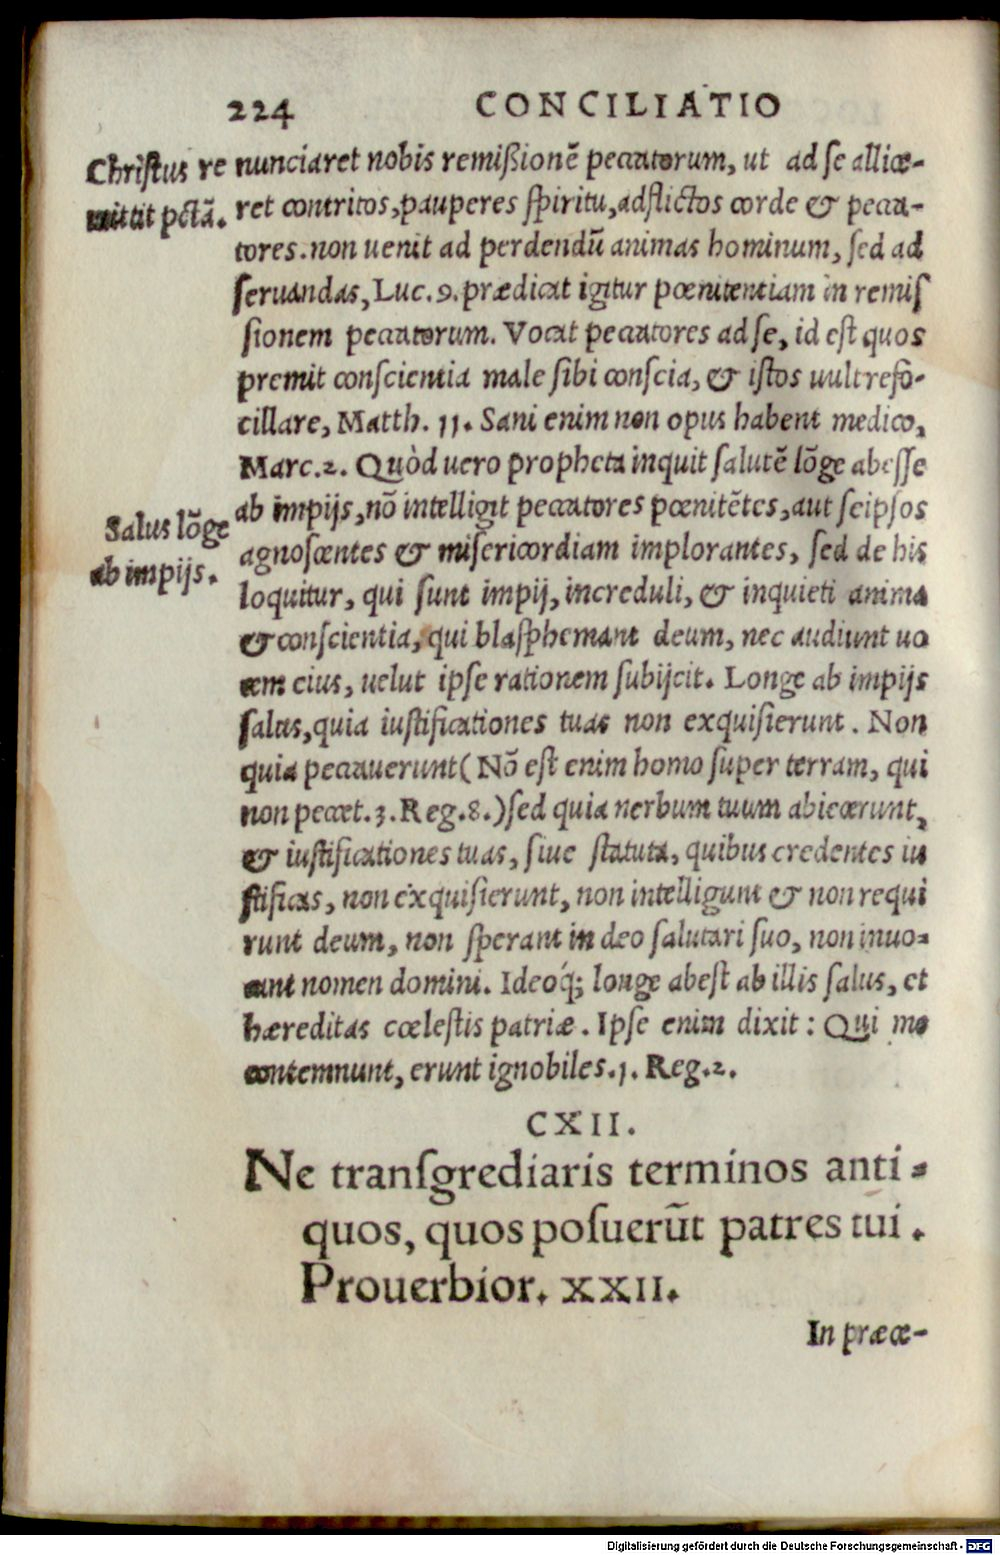 224 CONCILIATIO
Chriſtus re
mittit pctã.
nunciaret nobis remißionẽ peccatorum, ut ad ſe allice-
ret contritos, pauperes ſpiritu, adflictos corde & pecca-
tores. non uenit ad perdendũ animas hominum, ſed ad
ſeruandas, Luc. 9. prædicat igitur pœnitentiam in remiſ
ſionem peccatorum. Vocat peccatores ad ſe, id eſt quos
premit conſcientia male ſibi conſcia, & iſtos uult refo-
cillare, Matth. 11. Sani enim non opus habent medico,
Marc. 2. Quòd uero propheta inquit ſalutẽ lõge abeſſe
Salus lõge
ab impijs.
ab impijs, nõ intelligit peccatores pœnitẽtes, aut ſeipſos
agnoſcentes & miſericordiam implorantes, ſed de his
loquitur, qui ſunt impij, increduli, & inquieti anima
& conſcientia, qui blaſphemant deum, nec audiunt uo
cem eius, uelut ipſe rationem ſubijcit. Longe ab impijs
ſalus, quia iuſtificationes tuas non exquiſierunt. Non
quia peccauerunt (Nõ eſt enim homo ſuper terram, qui
non peccet. 3. Reg. 8.) ſed quia uerbum tuum abiecerunt,
& iuſtificationes tuas, ſiue ſtatuta, quibus credentes iu
ſtificas, non exquiſierunt, non intelligunt & non requi
runt deum, non ſperant in deo ſalutari ſuo, non inuo-
cant nomen domini. Ideoq́; longe abeſt ab illis ſalus, et
hæreditas cœleſtis patriæ. Ipſe enim dixit: Qui me
contemnunt, erunt ignobiles. 1. Reg. 2.
CXII.
Ne tranſgrediaris terminos anti-
quos, quos poſuerũt patres tui.
Prouerbior. XXII.
In præce-
Digitalisierung gefördert durch die Deutsche Forschungsgemeinschaft - DFG